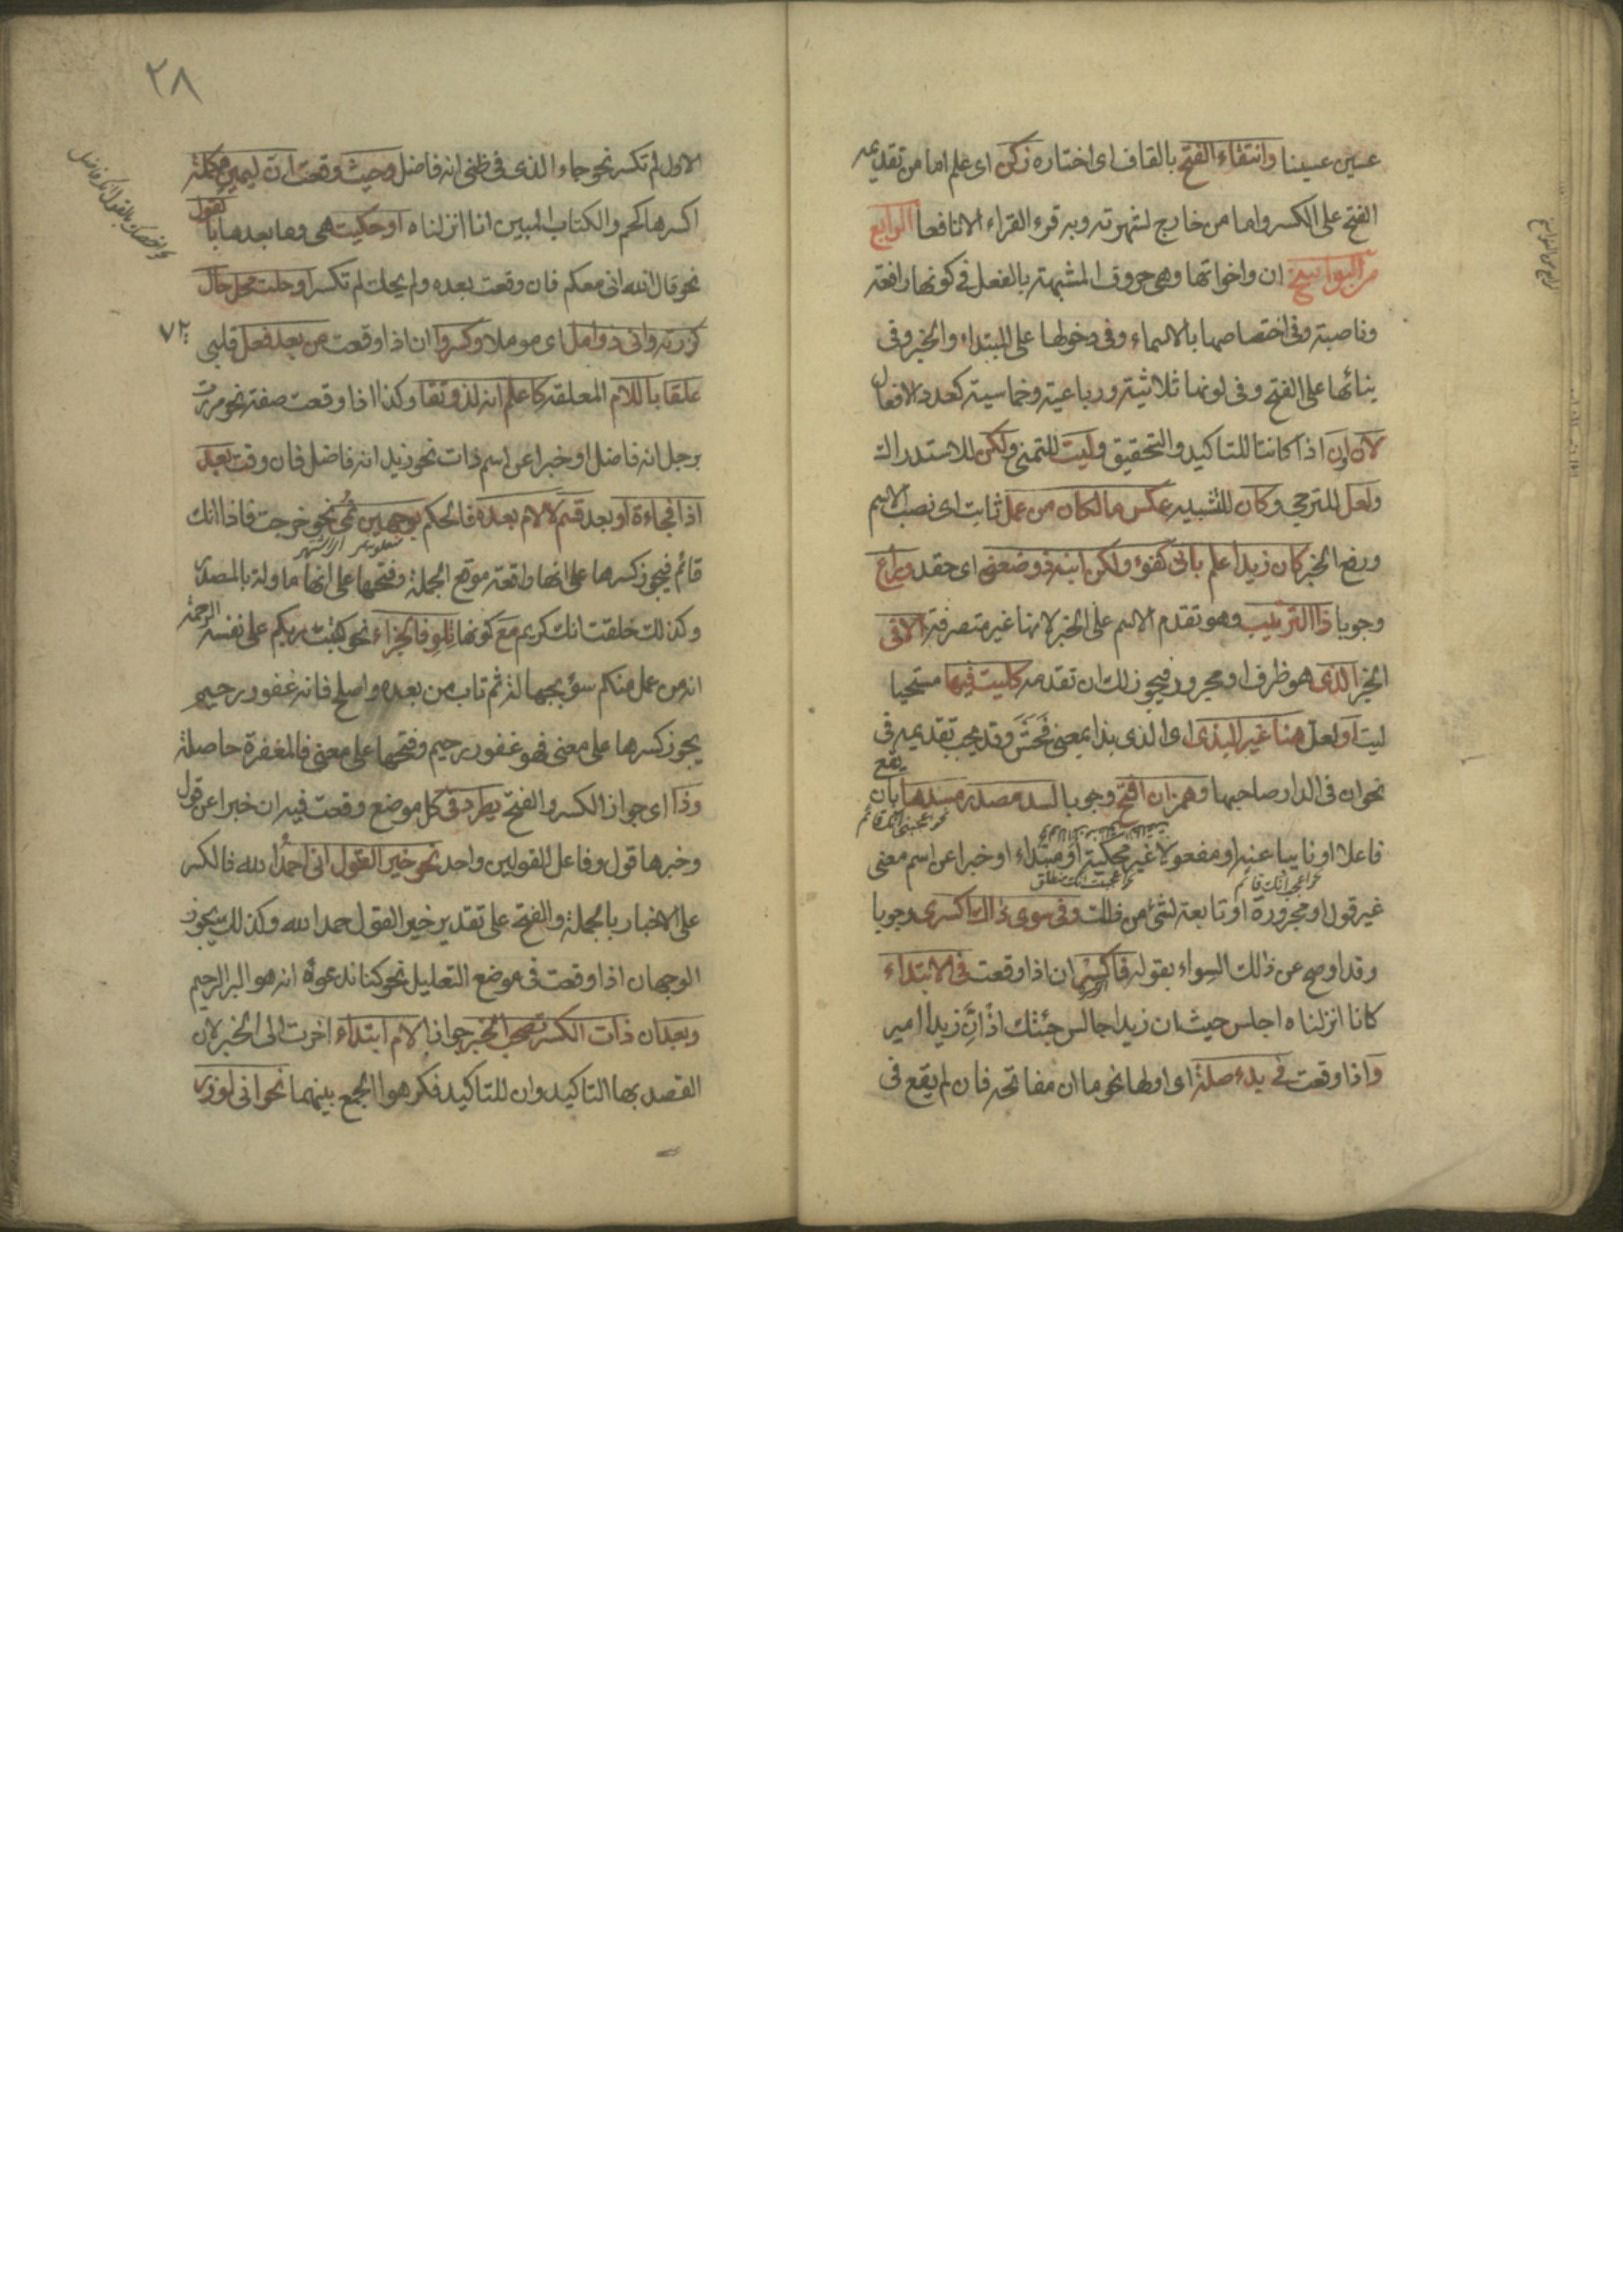 عسين عسينا وانتقاء الفتح بالقاف اى اختياره زكن اى علم اما من تقديمه
الفتح على الكسر واما من خارج لشهرته وبه قرء القراء الا نافعا الرابع
من النواسخ ان واخواتها وهى حروف المشبهة بالفعل فى كونها رافعة
وناصبة وفى اختصاصها بالاسماء وفى دخولها على المبتداء والخبر وفى
بنائها على الفتح وفى كونها ثلاثية ورباعية وخماسية كعدد الافعال
لان ان اذا كانتا للتاكيد والتحقيق وليت للتمنى ولكن للاستدراك
ولعل للترجى وكان للتشبيه عكس ما لكان من عمل ثابت اى نصب الاسم
ورفع الخبر كان زيدا علم بانى كفوء ولكن ابنه ذو ضغن اى حقد وراع
وجوبا ذا الترتيب وهو تقدم الاسم على الخبر لانها غير متصرفة الا فى
الخبر الذى هو ظرف او مجرور فيجوز لك ان تقدمه كليت فيها مستحيا
ليت او لعل هنا غير البذى اى الذى بذا بمعنى فحش وقد يجب تقديمه فى
نحو ان فى الدار صاحبها وهمز ان افتح وجوبا لسد مصدر مسدها بان يقع
نحو اعجبنى انك قائم
فاعلا او نايبا عنه او مفعولا غير محكية او مبتداء او خبرا عن اسم معنى
غير قول او مجرورة او تابعة لشئ من ذلك وفى سوى ذاك اكسرى وجوبا
وقد اوضح عن ذلك السواء بقوله فاكسر ان اذا وقعت فى الابتداء
كانا انزلناه اجلس حيث ان زيدا جالس جئتك اذ ان زيدا امير
واذا وقعت فى بدء صلة اى اولها نحو ما ان مفاتحه فان لم يقع فى
٢٨
الاول لم تكسر نحو جاء الذى فى ظنى انه فاضل وحيث وقعت ان ليمين مكملة
اكسرها كحم والكتاب المبين انا انزلناه او حكيت هى وما بعدها بالقول
نحو قال الله انى معكم فان وقعت بعده ولم يحك لم تكسر او حلت محل حال
كزرته وانى ذو امل اى موملا وكسروا ان اذا وقعت من بعد فعل قلبى
علقا باللام المعلقة كاعلم انه لذو تقا وكذا اذا وقعت صفة نحو مررت
برجل انه فاضل او خبرا عن اسم ذات نحو زيد انه فاضل فان وقعت بعد
اذا فجاءة او بعد قسم لا لام بعده فالحكم بوجهين نمى نحو خرجت فاذا انك
قائم فيجوز كسرها على انها واقعة موقع الجملة وفتحها على انها ماولة بالمصدر
وكذلك حلفت انك كريم مع كونها تلو فا الجزاء نحو كتب ربكم على نفسه الرحمة
انه من عمل منكم سؤ بجهالة ثم تاب من بعده واصلح فانه غفور رحيم
يجوز كسرها على معنى فهو غفور رحيم وفتحها على معنى فالمغفرة حاصلة
وذا اى جواز الكسر والفتح يطرد فى كل موضع وقعت فيه ان خبرا عن قول
وخبرها قول وفاعل القولين واحد نحو خير القول انى احمد الله فالكسر
على الاخبار بالجملة والفتح على تقدير خير القول حمد الله وكذلك يجوز
الوجهان اذا وقعت فى موضع التعليل نحو كنا ندعوه انه هو البر الرحيم
وبعد ان ذات الكسر تصحب الخبر جوازا لام ابتداء اخرت الى الخبر لان
القصد بها التاكيد وان للتاكيد فكرهوا الجمع بينهما نحو انى لوزر